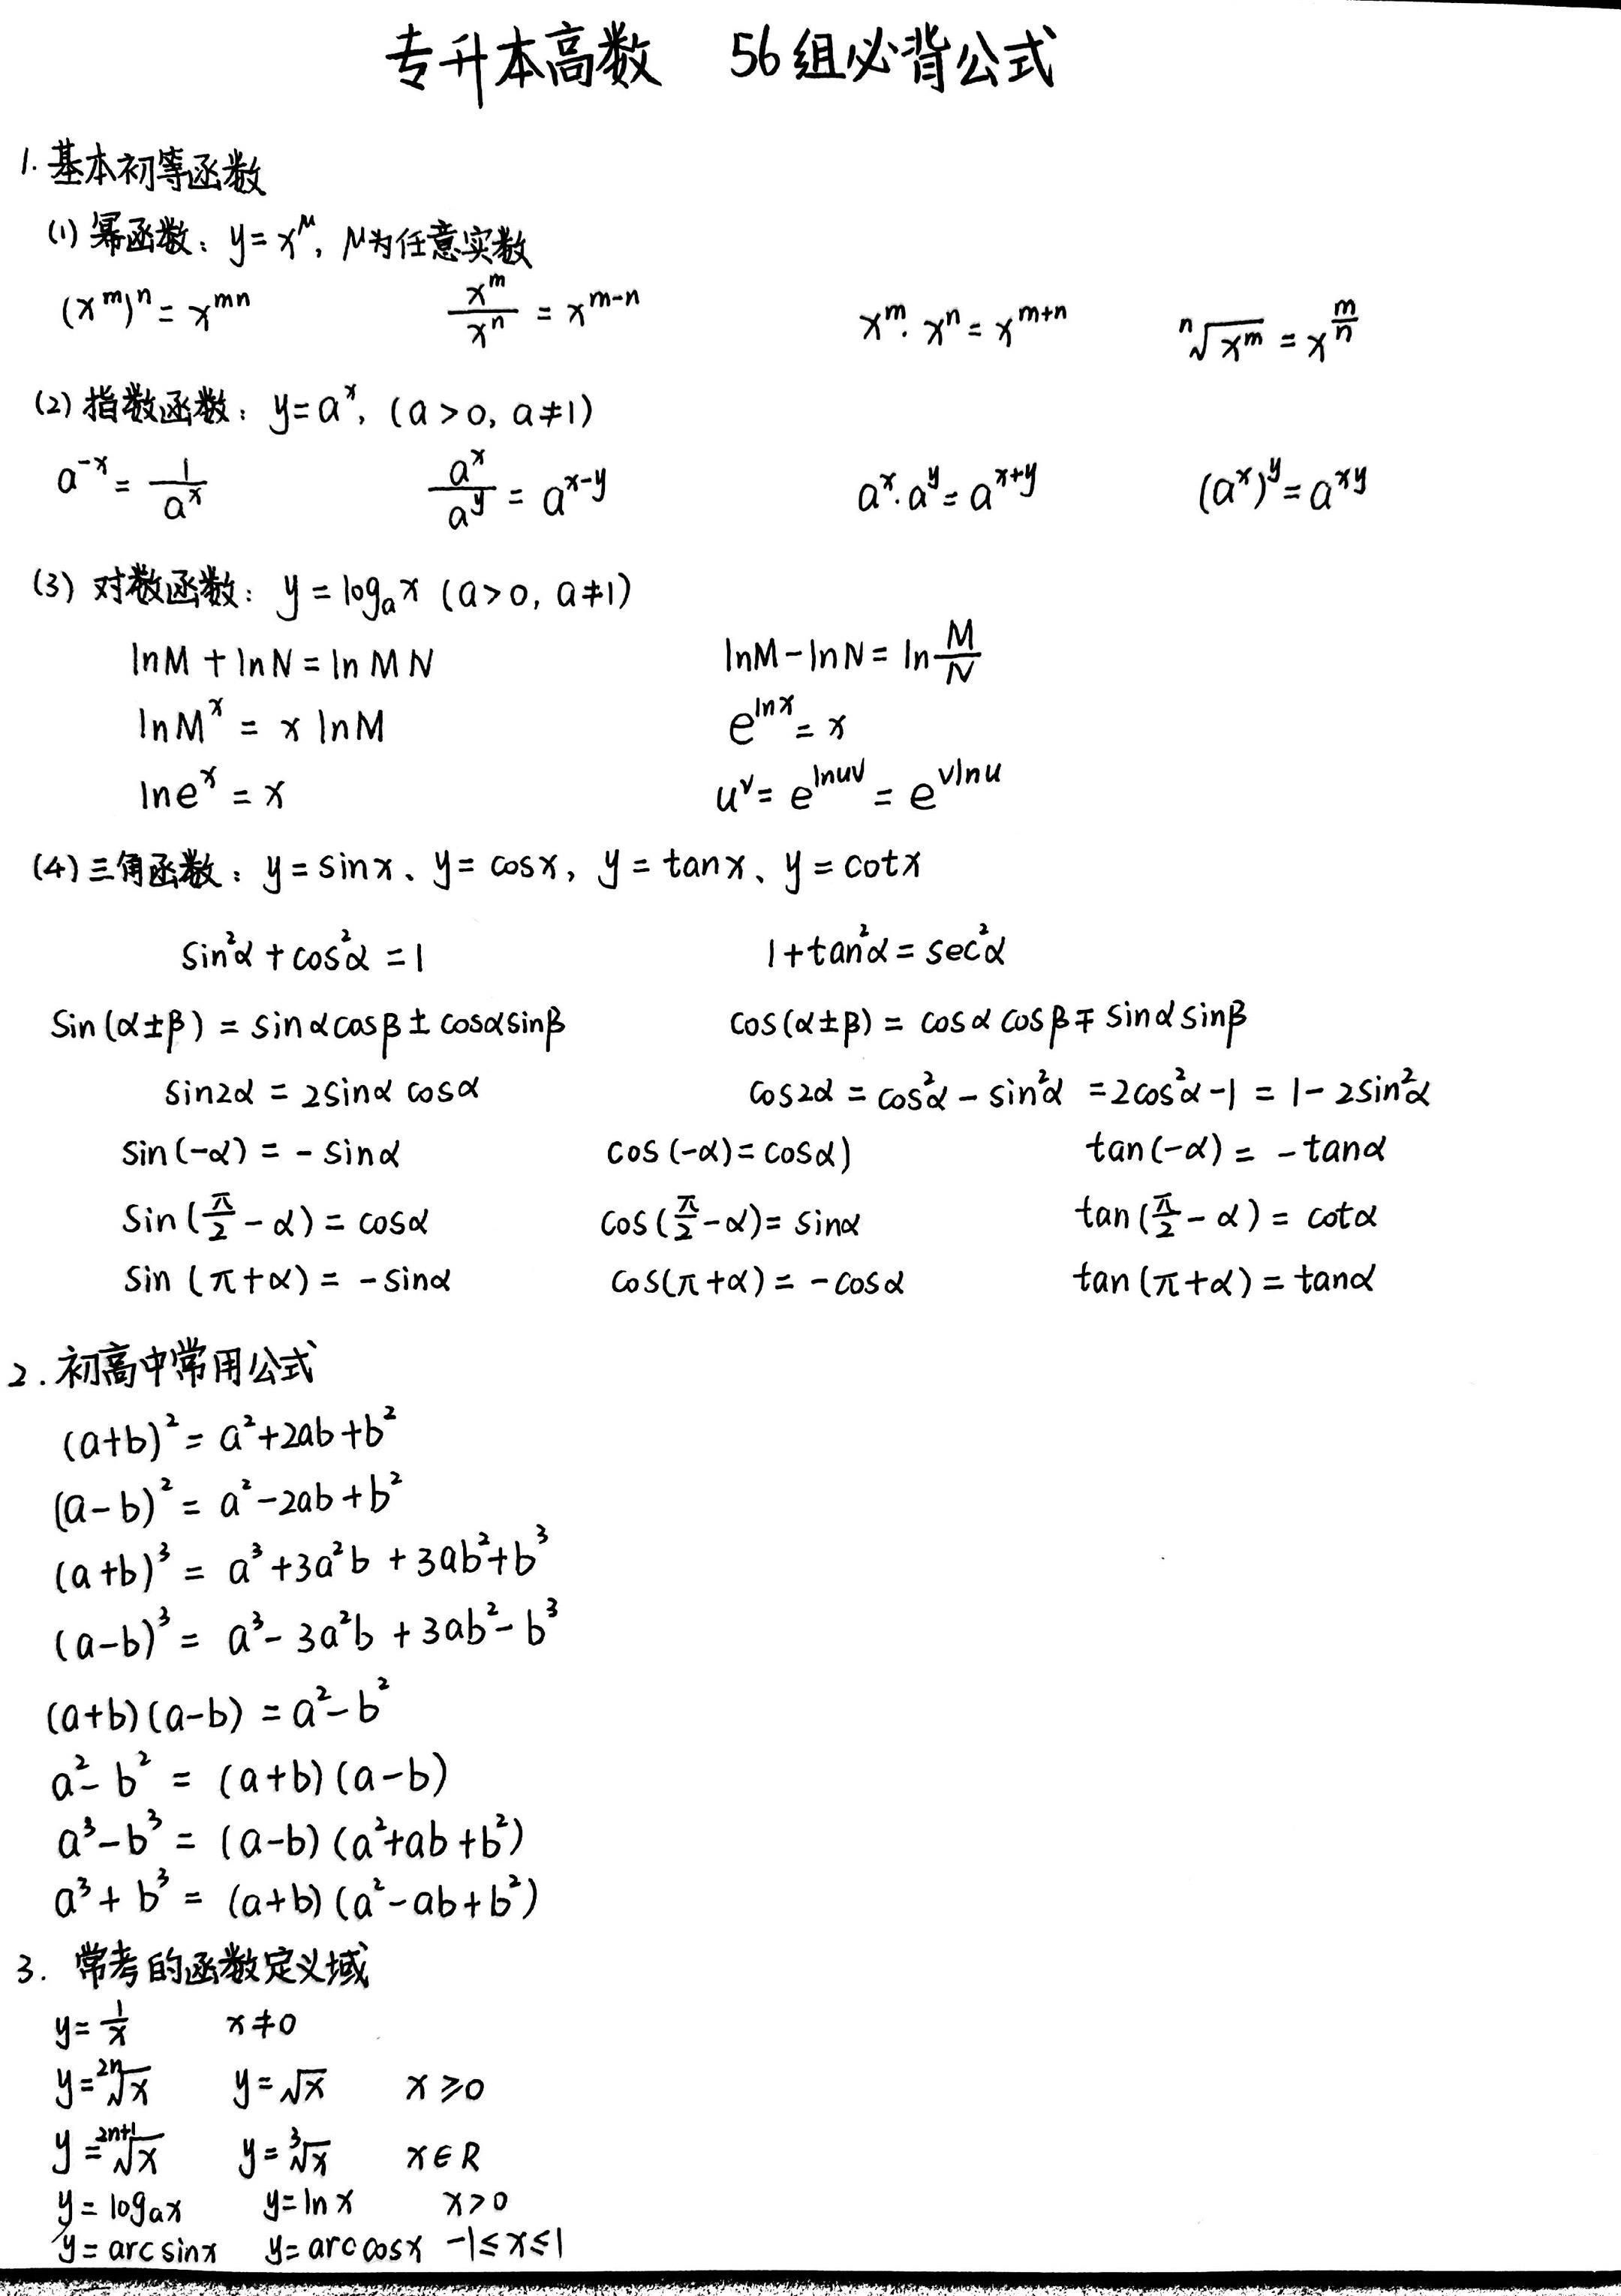 专升本高数 56组必背公式
1. 基本初等函数
(1) 幂函数：y = x^μ, μ为任意实数
(x^m)^n = x^{mn} x^m/x^n = x^{m-n} x^m · x^n = x^{m+n} ⁿ√(x^m) = x^{m/n}
(2) 指数函数：y = a^x, (a > 0, a ≠ 1)
a^{-x} = 1/a^x a^x/a^y = a^{x-y} a^x · a^y = a^{x+y} (a^x)^y = a^{xy}
(3) 对数函数：y = log_a x (a > 0, a ≠ 1)
lnM + lnN = ln MN lnM - lnN = ln M/N
lnM^x = x lnM e^{lnx} = x
lne^x = x u^v = e^{lnuv} = e^{vlnu}
(4) 三角函数：y = sinx、y = cosx, y = tanx、y = cotx
sin²α + cos²α = 1 1 + tan²α = sec²α
Sin(α±β) = sinαcosβ ± cosαsinβ cos(α±β) = cosαcosβ ∓ sinαsinβ
sin2α = 2sinα cosα cos2α = cos²α - sin²α = 2cos²α - 1 = 1 - 2sin²α
sin(-α) = - sinα cos(-α) = cosα) tan(-α) = - tanα
Sin(π/2 - α) = cosα cos(π/2 - α) = sinα tan(π/2 - α) = cotα
Sin (π+α) = - sinα cos(π+α) = - cosα tan(π+α) = tanα
2. 初高中常用公式
(a+b)² = a² + 2ab + b²
(a-b)² = a² - 2ab + b²
(a+b)³ = a³ + 3a²b + 3ab² + b³
(a-b)³ = a³ - 3a²b + 3ab² - b³
(a+b)(a-b) = a² - b²
a² - b² = (a+b)(a-b)
a³ - b³ = (a-b)(a²+ab+b²)
a³ + b³ = (a+b)(a²-ab+b²)
3. 常考的函数定义域
y = 1/x x ≠ 0
y = ²ⁿ√x y = √x x ≥ 0
y = ²ⁿ⁺¹√x y = ³√x x ∈ R
y = log_a x y = ln x x > 0
y = arc sinx y = arc cosx -1 ≤ x ≤ 1